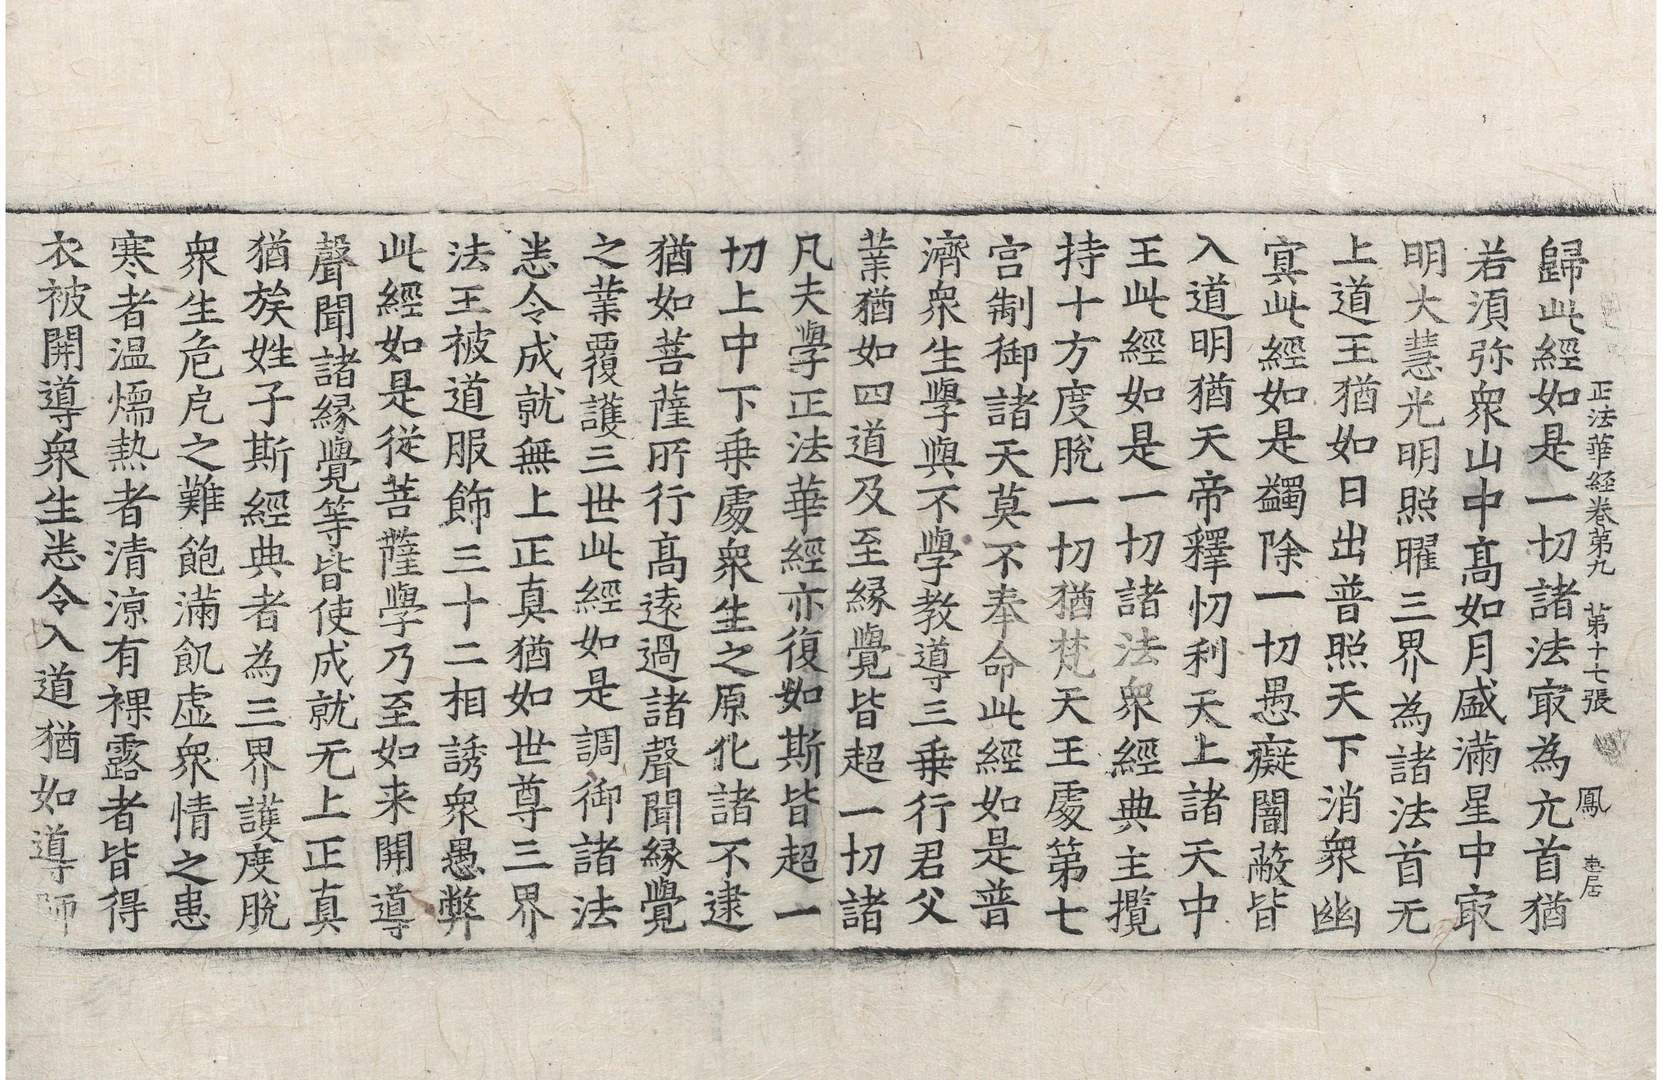 正法華経巻第九 第十七張 鳳
歸此經如是一切諸法㝡為元首猶
若須弥衆山中髙如月盛滿星中㝡
明大慧光明照曜三界為諸法首无
上道王猶如日出普照天下消衆幽
冥此經如是蠲除一切愚癡闇蔽皆
入道明猶天帝釋忉利天上諸天中
王此經如是一切諸法衆經典主攬
持十方度脫一切猶梵天王處第七
宫制御諸天莫不奉命此經如是普
濟衆生學與不學教導三乗行君父
業猶如四道及至縁覺皆超一切諸
凡夫學正法華經亦復如斯皆超一
切上中下乗處衆生之原化諸不逮
猶如菩薩所行髙遠過諸聲聞縁覺
之業覆護三世此經如是調御諸法
恙令成就無上正真猶如世尊三界
法王被道服飾三十二相誘衆愚弊
此經如是從菩薩學乃至如来開導
聲聞諸縁覺等皆使成就无上正真
猶族姓子斯經典者為三界護度脫
衆生危厄之難飽滿飢虚衆情之患
寒者温燸熱者清涼有裸露者皆得
衣被開導衆生恙令入道猶如導師